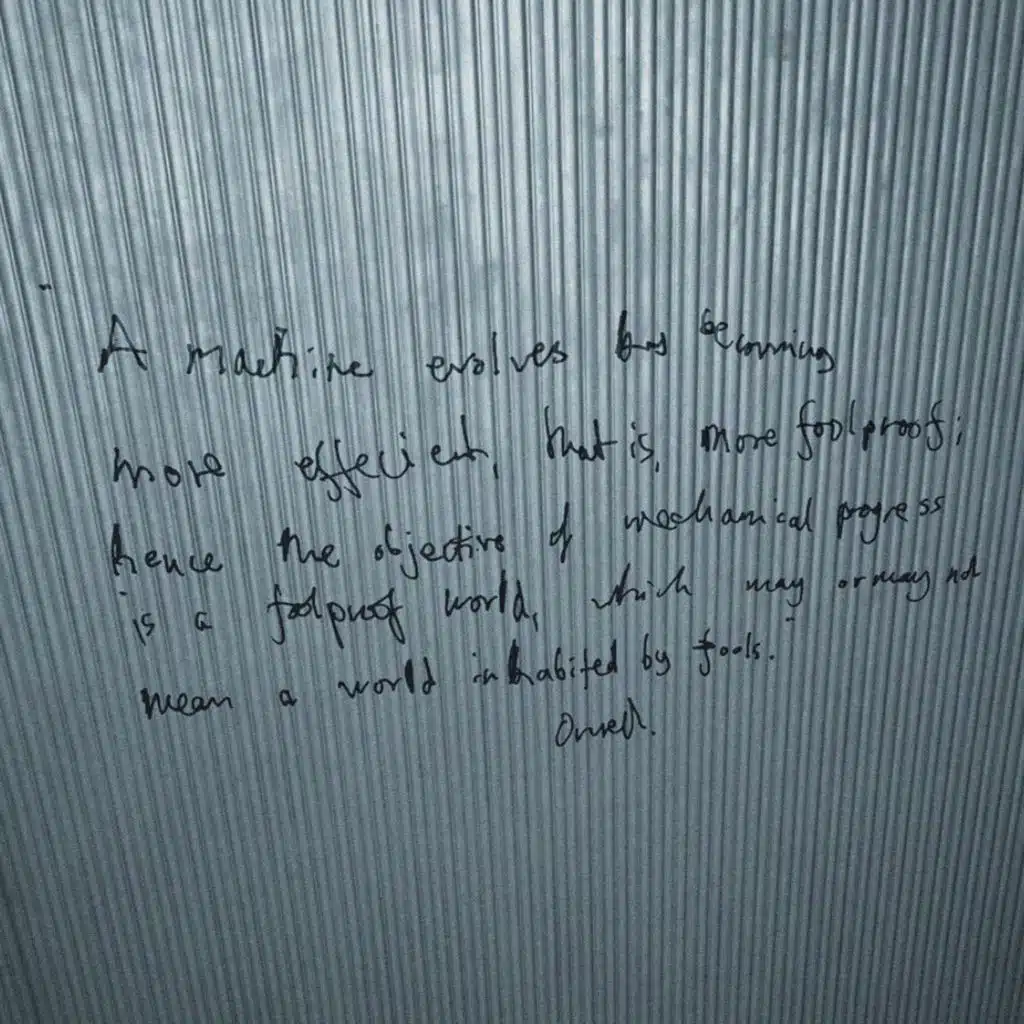 " A machine evolves by becoming
more effecient, that is, more foolproof;
hence the objective of mechanical progress
is a foolproof world, which may or may not
mean a world inhabited by fools."
Orwell.